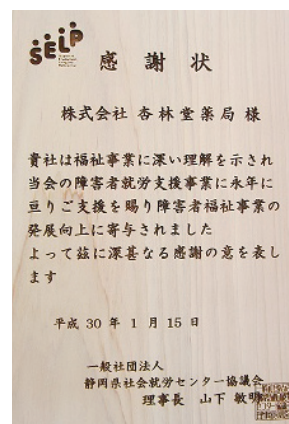 SELP
感謝状
株式会社 杏林堂薬局 様
貴社は福祉事業に深い理解を示され
当会の障害者就労支援事業に永年に
亘りご支援を賜り障害者福祉事業の
発展向上に寄与されました
よって茲に深甚なる感謝の意を表し
ます
平成 30 年 1 月 15 日
一般社団法人
静岡県社会就労センター協議会
理事長 山下 敏明